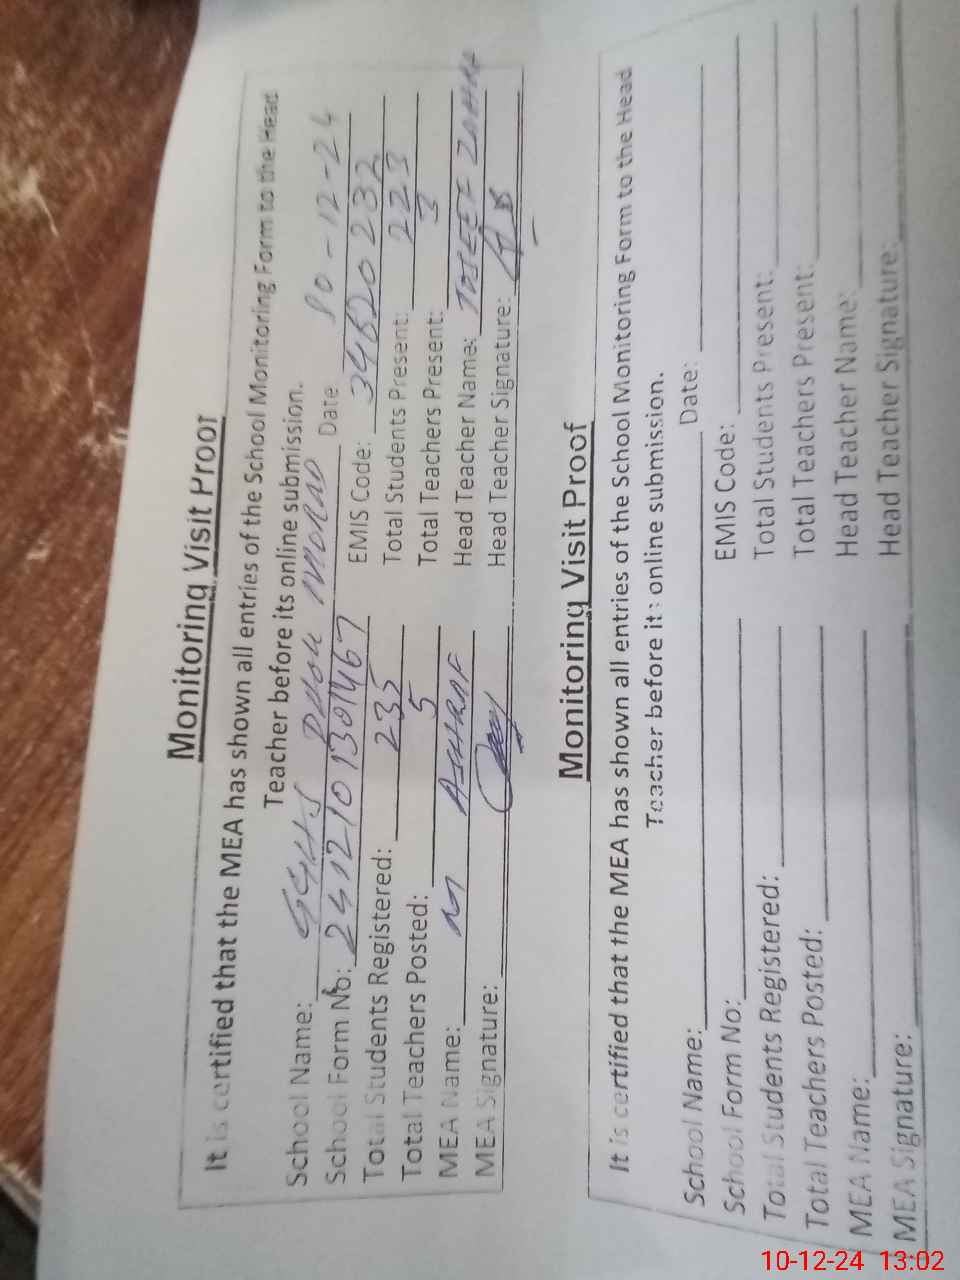 Monitoring Visit Proof
It is certified that the MEA has shown all entries of the School Monitoring Form to the Head
Teacher before its online submission.
School Name: GGHS Date: 10-12-24
School Form No: EMIS Code: 34620232
Total Students Registered: 235 Total Students Present: 223
Total Teachers Posted: 5 Total Teachers Present: 3
MEA Name: M ASHRAF Head Teacher Name:
MEA Signature: Head Teacher Signature:
Monitoring Visit Proof
It is certified that the MEA has shown all entries of the School Monitoring Form to the Head
Teacher before its online submission.
School Name: Date:
School Form No: EMIS Code:
Total Students Registered: Total Students Present:
Total Teachers Posted: Total Teachers Present:
MEA Name: Head Teacher Name:
MEA Signature: Head Teacher Signature:
10-12-24 13:02